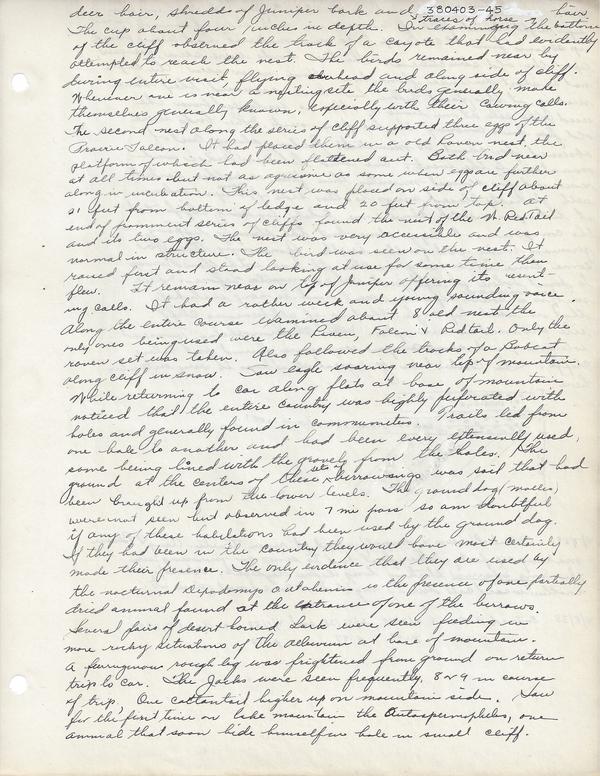 380403-45
deer hair, shreds of Juniper bark and traces of horse hair
The cup about four inches in depth. In examining the bottom
of the cliff observed the track of a coyote that had evidently
attempted to reach the nest. The birds remained near by
during entire visit flying overhead and along side of cliff.
Whenever one is near a nesting site the birds generally make
themselves generally known, especially with their cawing calls.
The second nest along the series of cliff supported three eggs of the
Prairie Falcon. It had placed them in a old Raven nest, the
platform of which had been flattened out. Both bird near
at all times but not as agressive as some when eggs are further
along in incubation. This nest was placed on side of cliff about
21 feet from bottom of ledge and 20 feet from top. At
end of prominent series of cliffs found the nest of the W. Red Tail
and its two eggs. The nest was very accessible and was
normal in structure. The bird was seen on the nest. It
raised first and stood looking at use for some time then
flew. It remain near on top of Juniper offering its
ing calls. It had a rather weak and young sounding voice.
Along the entire course examined about 8 old nest the
only ones being used were the Raven, Falcon & Redtail. Only the
raven set was taken. Also followed the tracks of a Bobcat
along cliff in snow. Saw eagle soaring near top of mountain.
While returning to car along flats at base of mountain
noticed that the entire country was highly perforated with
holes and generally found in communities. Trails led from
one hole to another and had been every extensively used,
some being lined with the gravely from the holes. The
ground at the centers of these sets of burrowings was soil that had
been brought up from the lower levels. The ground dog (molles)
were not seen but observed in 7 mi pass so am doubtful
if any of these habitations had been used by the ground dog.
If they had been in the country they would have most certainly
made their presence. The only evidence that they are used by
the nocturnal Dipodomys is the presence of one partially
dried animal found at the entrance of one of the burrows.
Several pairs of desert horned Lark were seen feeding in
more rocky situations of the alluvium at base of mountain.
A ferruginous rough leg was frightened from ground on return
trip to car. The Jacks were seen frequently, 8 or 9 in course
of trip. One cottontail higher up on mountain side. Saw
for the first time on lake mountain the Citospermophilus, one
animal that soon hide himself in hole in small cliff.